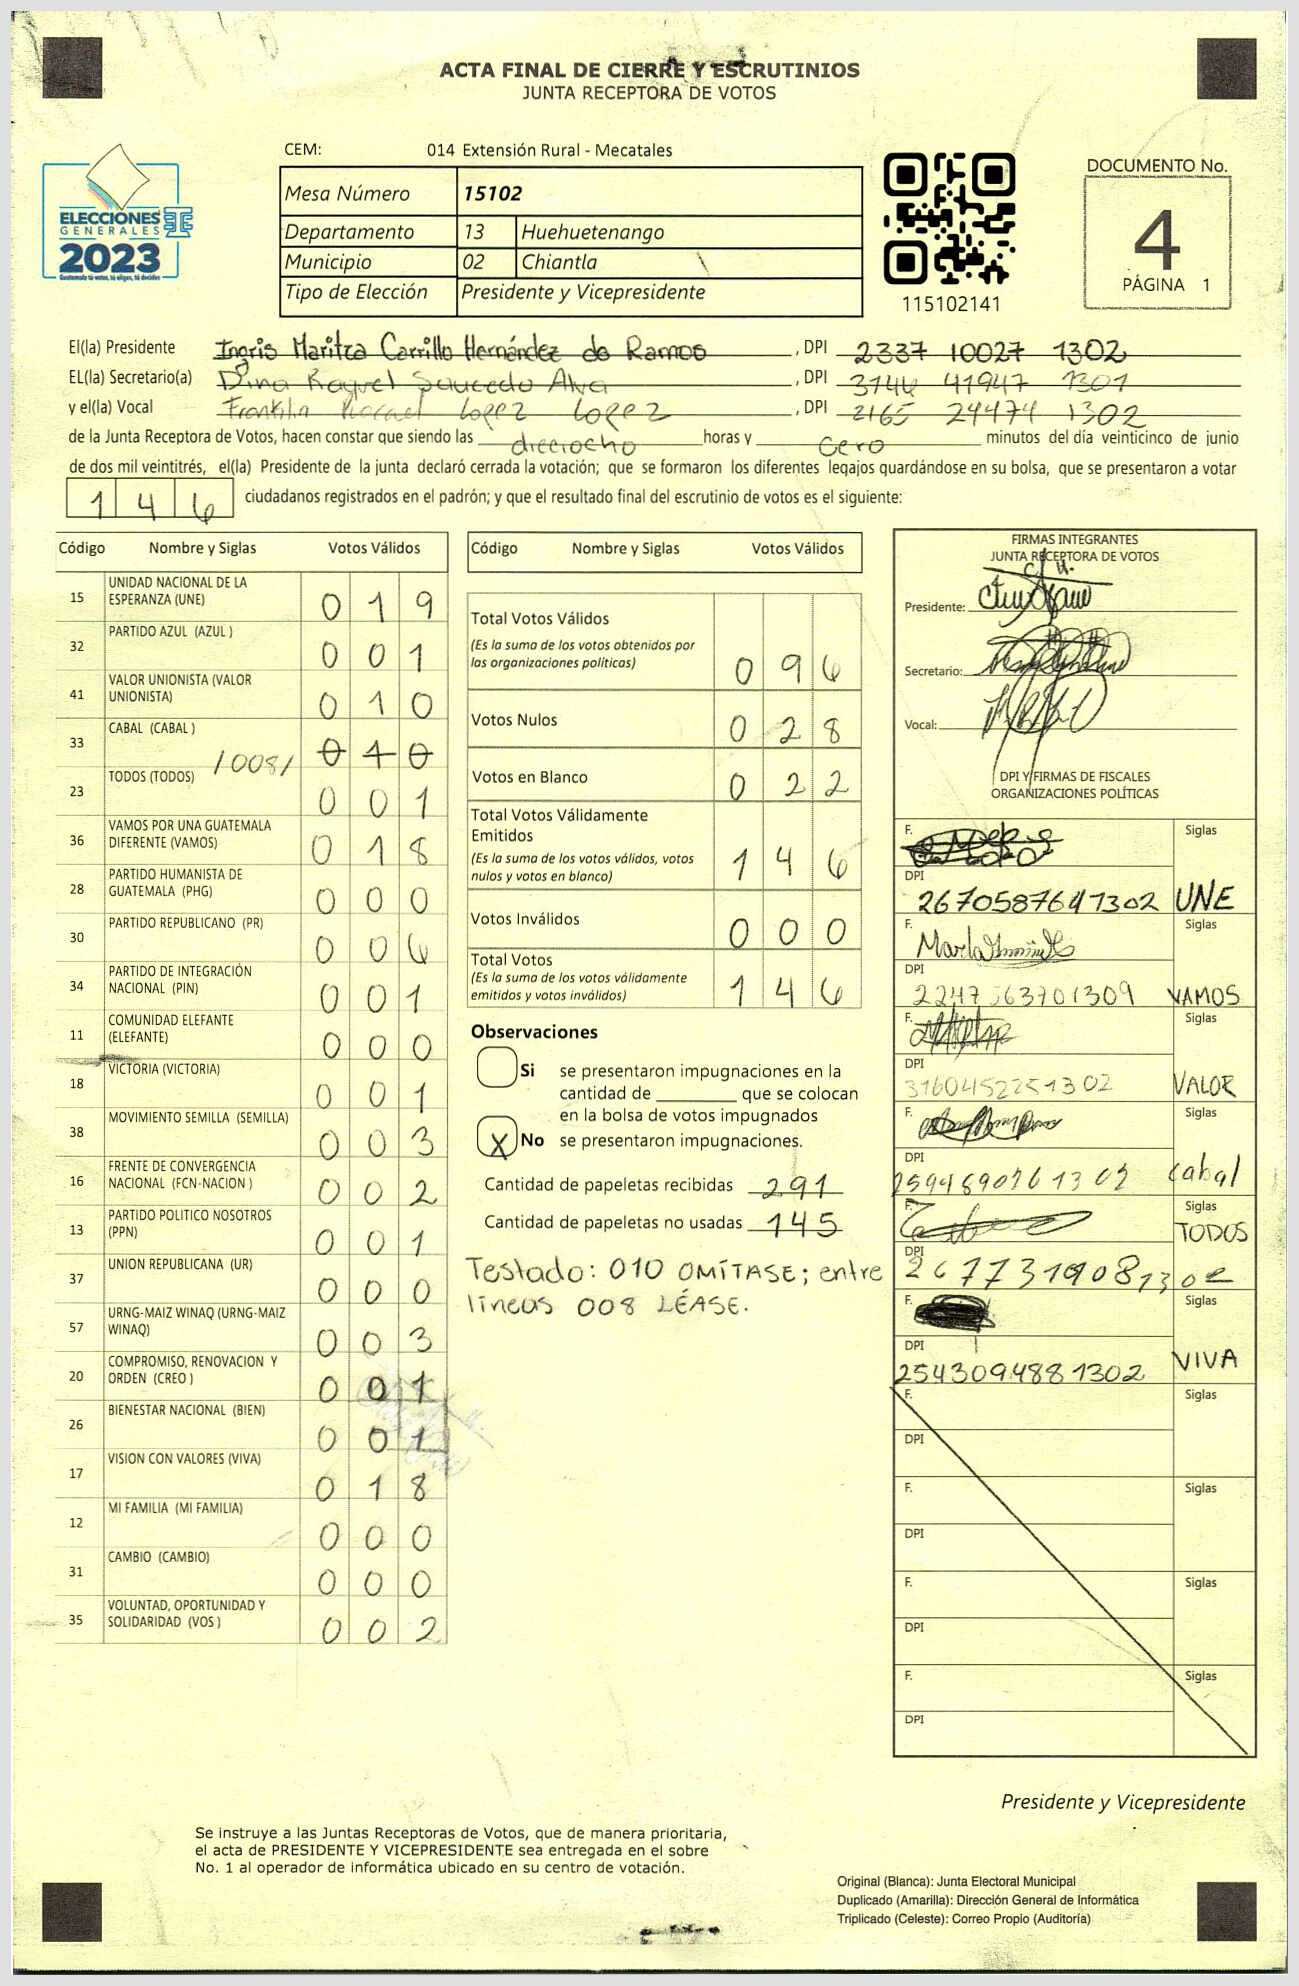 ACTA FINAL DE CIERRE Y ESCRUTINIOS
JUNTA RECEPTORA DE VOTOS
ELECCIONES
GENERALES
2023
Guatemala tú votas, tú eliges, tú decides
CEM: 014 Extensión Rural - Mecatales
Mesa Número 15102
Departamento 13 Huehuetenango
Municipio 02 Chiantla
Tipo de Elección Presidente y Vicepresidente
115102141
DOCUMENTO No.
4
PÁGINA 1
El(la) Presidente Ingris Maritza Carrillo Hernández de Ramos, DPI 2337 10027 1302
EL(la) Secretario(a) Dina Raquel Saucedo Alva, DPI 3144 41947 1301
y el(la) Vocal Franklin Rafael Lopez Lopez, DPI 2165 24474 1302
de la Junta Receptora de Votos, hacen constar que siendo las dieciocho horas y cero minutos del día veinticinco de junio
de dos mil veintitrés, el(la) Presidente de la junta declaró cerrada la votación; que se formaron los diferentes legajos quardándose en su bolsa, que se presentaron a votar
146 ciudadanos registrados en el padrón; y que el resultado final del escrutinio de votos es el siguiente:
Código Nombre y Siglas Votos Válidos
15 UNIDAD NACIONAL DE LA ESPERANZA (UNE) 019
32 PARTIDO AZUL (AZUL ) 001
41 VALOR UNIONISTA (VALOR UNIONISTA) 010
33 CABAL (CABAL ) /008/ 010
23 TODOS (TODOS) 001
36 VAMOS POR UNA GUATEMALA DIFERENTE (VAMOS) 018
28 PARTIDO HUMANISTA DE GUATEMALA (PHG) 000
30 PARTIDO REPUBLICANO (PR) 006
34 PARTIDO DE INTEGRACIÓN NACIONAL (PIN) 001
11 COMUNIDAD ELEFANTE (ELEFANTE) 000
18 VICTORIA (VICTORIA) 001
38 MOVIMIENTO SEMILLA (SEMILLA) 003
16 FRENTE DE CONVERGENCIA NACIONAL (FCN-NACION ) 002
13 PARTIDO POLITICO NOSOTROS (PPN) 001
37 UNION REPUBLICANA (UR) 000
57 URNG-MAIZ WINAQ (URNG-MAIZ WINAQ) 003
20 COMPROMISO, RENOVACION Y ORDEN (CREO ) 001
26 BIENESTAR NACIONAL (BIEN) 001
17 VISION CON VALORES (VIVA) 018
12 MI FAMILIA (MI FAMILIA) 000
31 CAMBIO (CAMBIO) 000
35 VOLUNTAD, OPORTUNIDAD Y SOLIDARIDAD (VOS ) 002
Código Nombre y Siglas Votos Válidos
Total Votos Válidos
(Es la suma de los votos obtenidos por
las organizaciones políticas) 096
Votos Nulos 028
Votos en Blanco 022
Total Votos Válidamente
Emitidos
(Es la suma de los votos válidos, votos
nulos y votos en blanco) 146
Votos Inválidos 000
Total Votos
(Es la suma de los votos válidamente
emitidos y votos inválidos) 146
Observaciones
Si se presentaron impugnaciones en la
cantidad de ________ que se colocan
en la bolsa de votos impugnados
X No se presentaron impugnaciones.
Cantidad de papeletas recibidas 291
Cantidad de papeletas no usadas 145
Testado: 010 OMÍTASE; entre
líneas 008 LÉASE.
FIRMAS INTEGRANTES
JUNTA RECEPTORA DE VOTOS
Presidente:
Secretario:
Vocal:
DPI Y FIRMAS DE FISCALES
ORGANIZACIONES POLÍTICAS
F. Siglas
DPI
2670587641302 UNE
F. Siglas
DPI
VAMOS
F. Siglas
DPI
3160452251302 VALOR
F. Siglas
DPI
Cabal
F. Siglas
TODOS
DPI
2677319081302
F. Siglas
DPI
2543094881302 VIVA
F. Siglas
DPI
F. Siglas
DPI
F. Siglas
DPI
F. Siglas
DPI
Presidente y Vicepresidente
Se instruye a las Juntas Receptoras de Votos, que de manera prioritaria,
el acta de PRESIDENTE Y VICEPRESIDENTE sea entregada en el sobre
No. 1 al operador de informática ubicado en su centro de votación.
Original (Blanca): Junta Electoral Municipal
Duplicado (Amarilla): Dirección General de Informática
Triplicado (Celeste): Correo Propio (Auditoría)